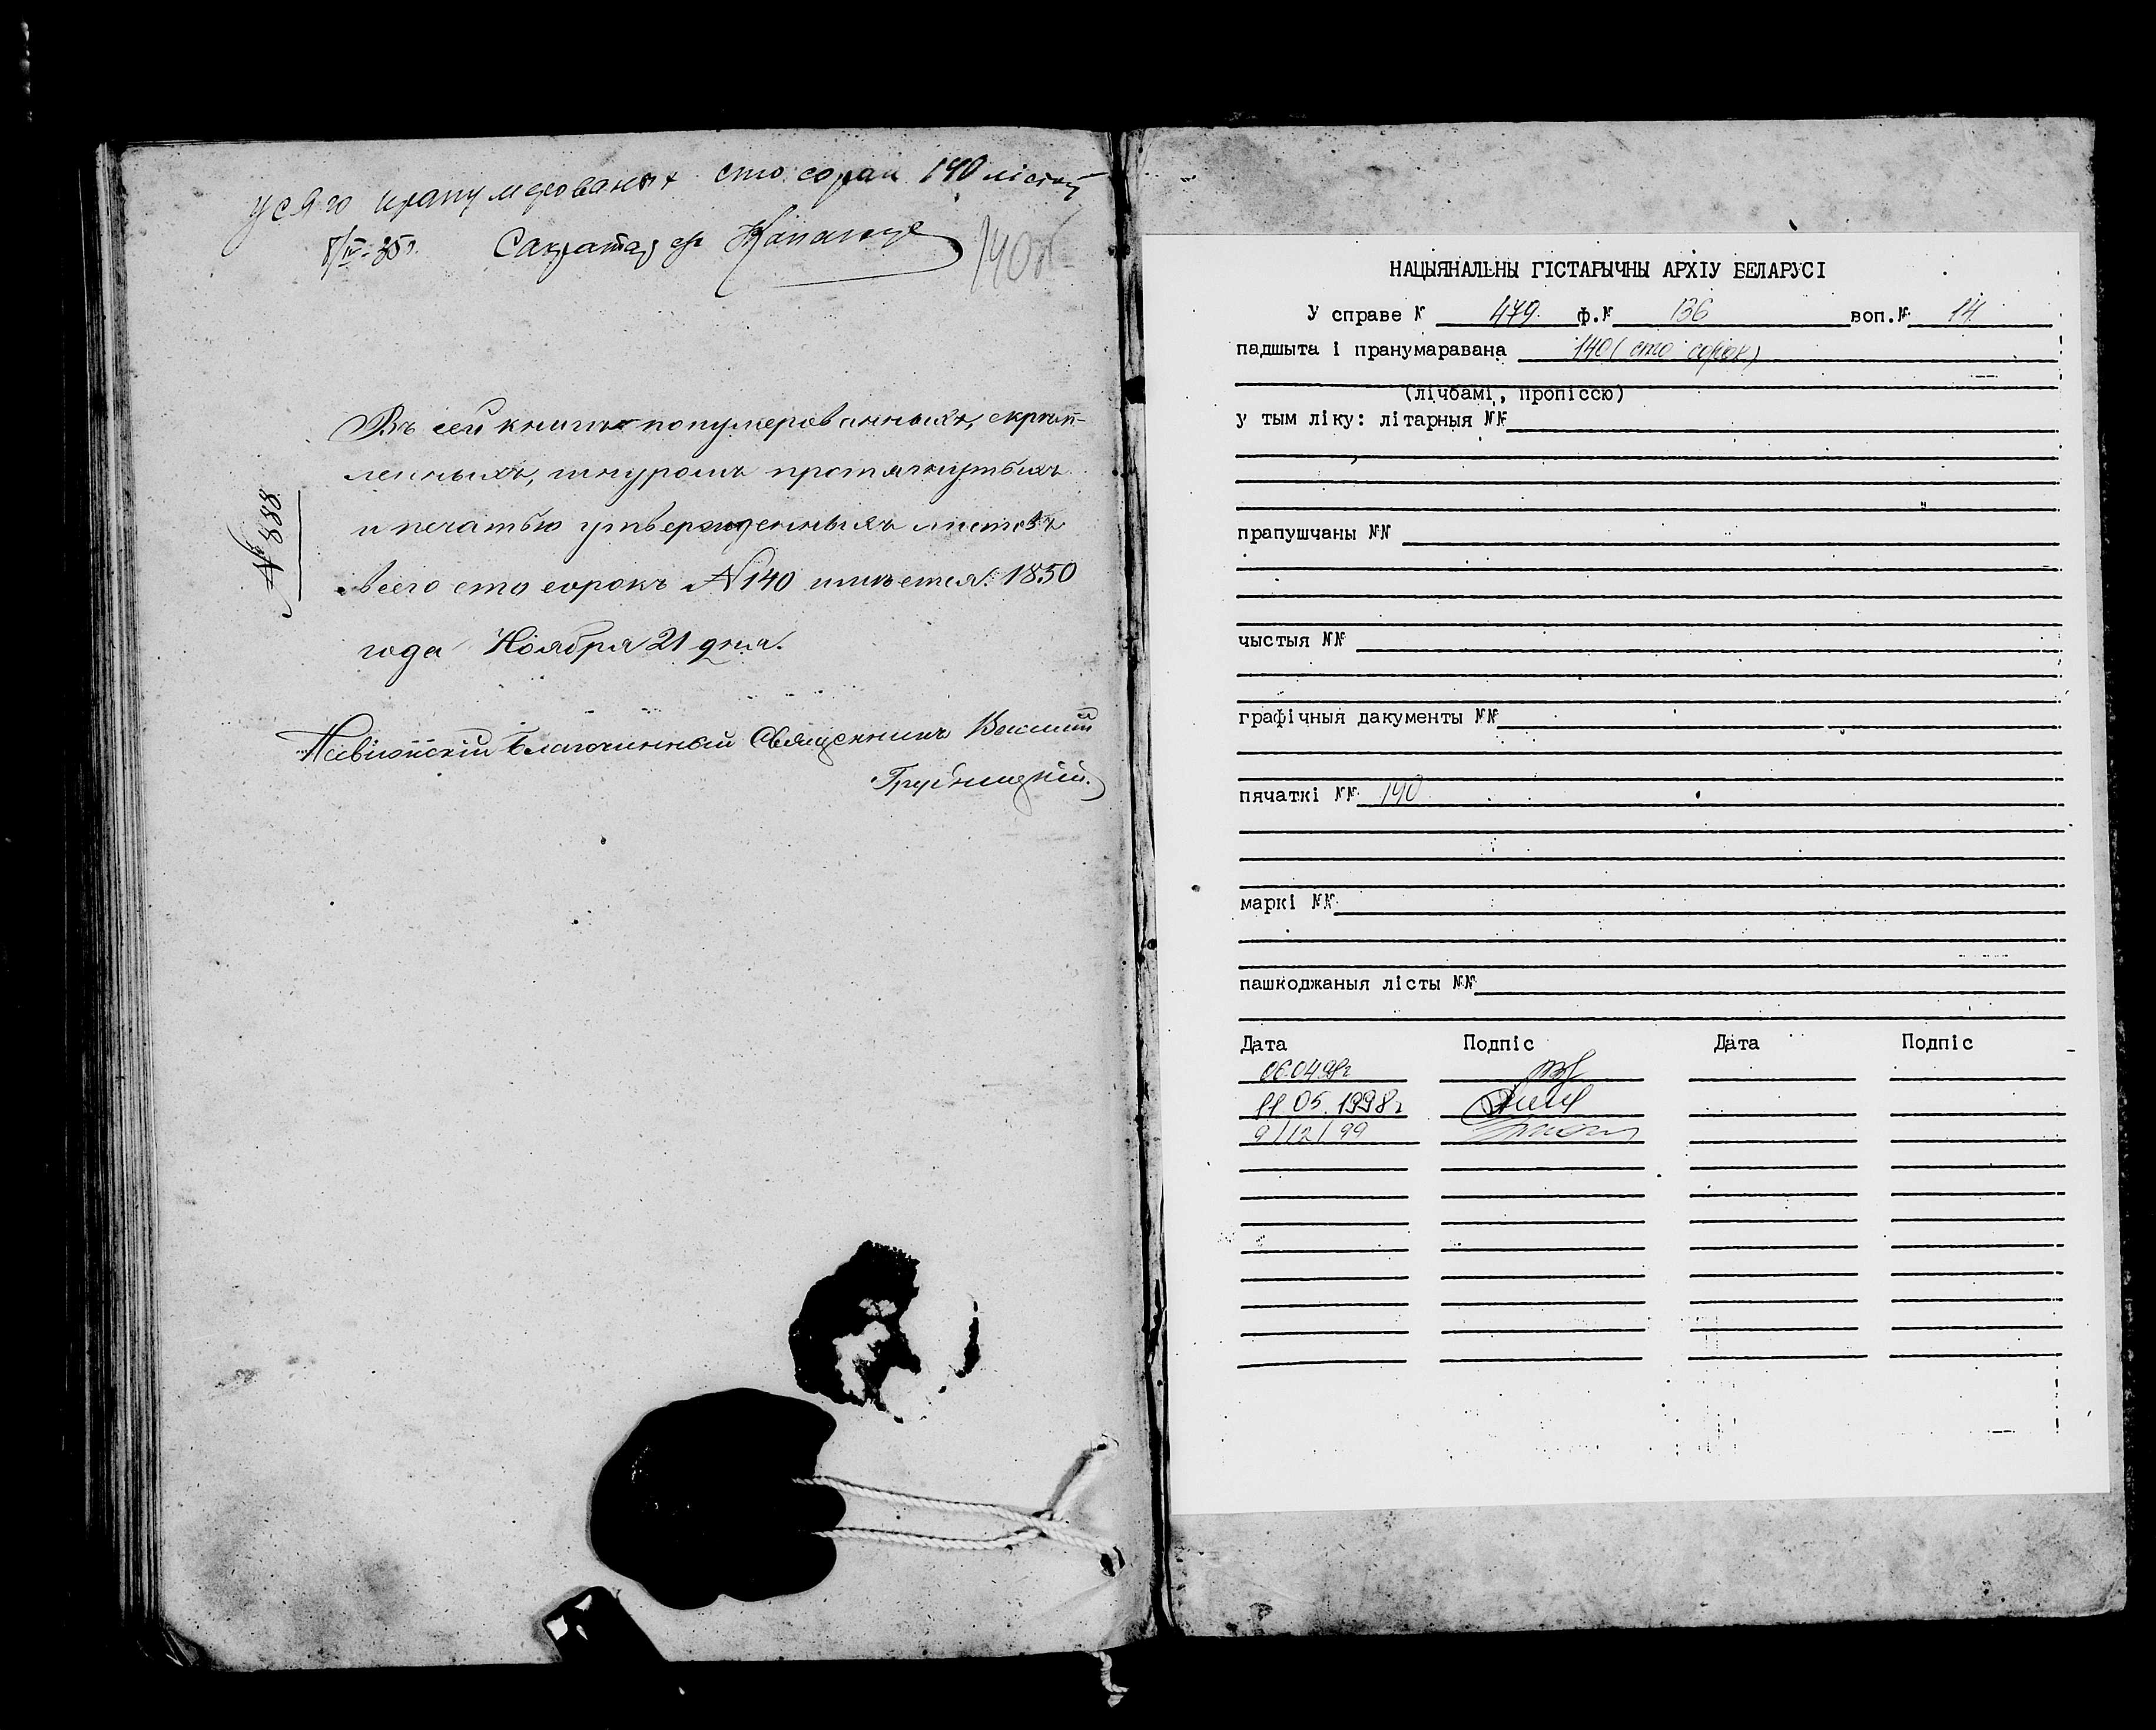 усяго пранумерованых сто сорак 140 лістоў
8/IV-35г. Сакратар
140
Въ сей книгѣ понумерованныхъ, скрѣп-
ленныхъ, шнуромъ протянутыхъ
и печатью утвержденныхъ листовъ
всего сто сорокъ N 140 имѣется. 1850
года Ноября 21 дня.
N 888
Благочинный Священникъ Василий
НАЦЫЯНАЛЬНЫ ГІСТАРЫЧНЫ АРХІУ БЕЛАРУСІ
У справе № 479 ф.№ 136 воп.№ 14
падшыта і пранумаравана 140 (сто сорок)
(лічбамі, пропіссю)
у тым ліку: літарныя №№
прапушчаны №№
чыстыя №№
графічныя дакументы №№
пячаткі №№ 140
маркі №№
пашкоджаныя лісты №№
Дата Подпіс Дата Подпіс
06.04.98г
11.05.1998г
9/12/99